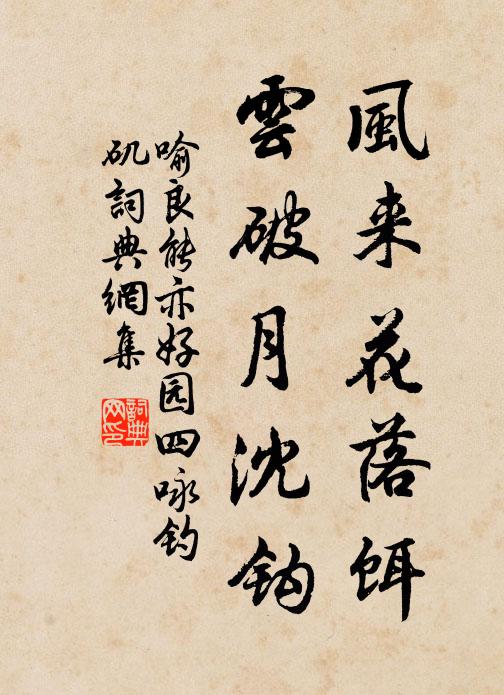 風来花落餌
雲破月沈鈎
喻良能亦好园四咏钓
矶詞典網集
詞典网印